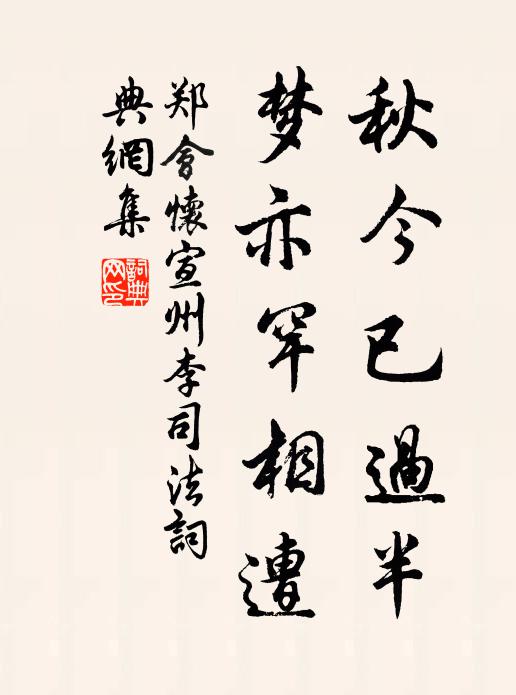 秋今已過半
梦亦罕相遭
郑會懷宣州李司法詞
典網集
詞典
网印